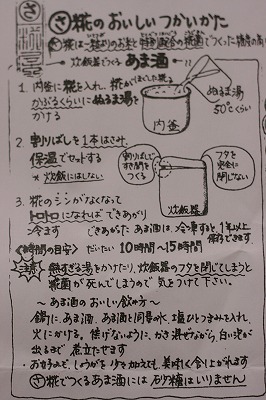 さ 糀屋
さ 糀のおいしいつかいかた
さ 糀は一粒よりのお米と特別配合の糀菌でつくった糖度の高い
炊飯器でつくる あま酒
1. 内釜に糀を入れ、糀が
かぶるくらいにぬるま湯を
かける
ぬるま湯
50℃くらい
内釜
2. 割りばしを1本はさみ、
保温でセットする
※ 炊飯にはしない
割りばしで
すき間を
つくる
フタを
完全に
閉じない
炊飯器
3. 糀のシンがなくなって
トロトロになればできあがり
冷ます
できあがったあま酒は、冷凍すると1年以上
保存できます
〈時間の目安〉 だいたい 10時間〜15時間
注意
熱すぎる湯をかけたり、炊飯器のフタを閉じてしまうと
糀菌が死んでしまうので気をつけて下さい。
〜あま酒のおいしい飲み方〜
鍋に、あま酒、あま酒と同量の水、塩ひとつまみを入れ、
火にかける。焦げないように、かき混ぜながら、白い泡が
出るまで 煮立たせます
・お好みで、しょうがを加えても、美味しく召し上がれます
さ 糀でつくるあま酒には 砂糖はいりません